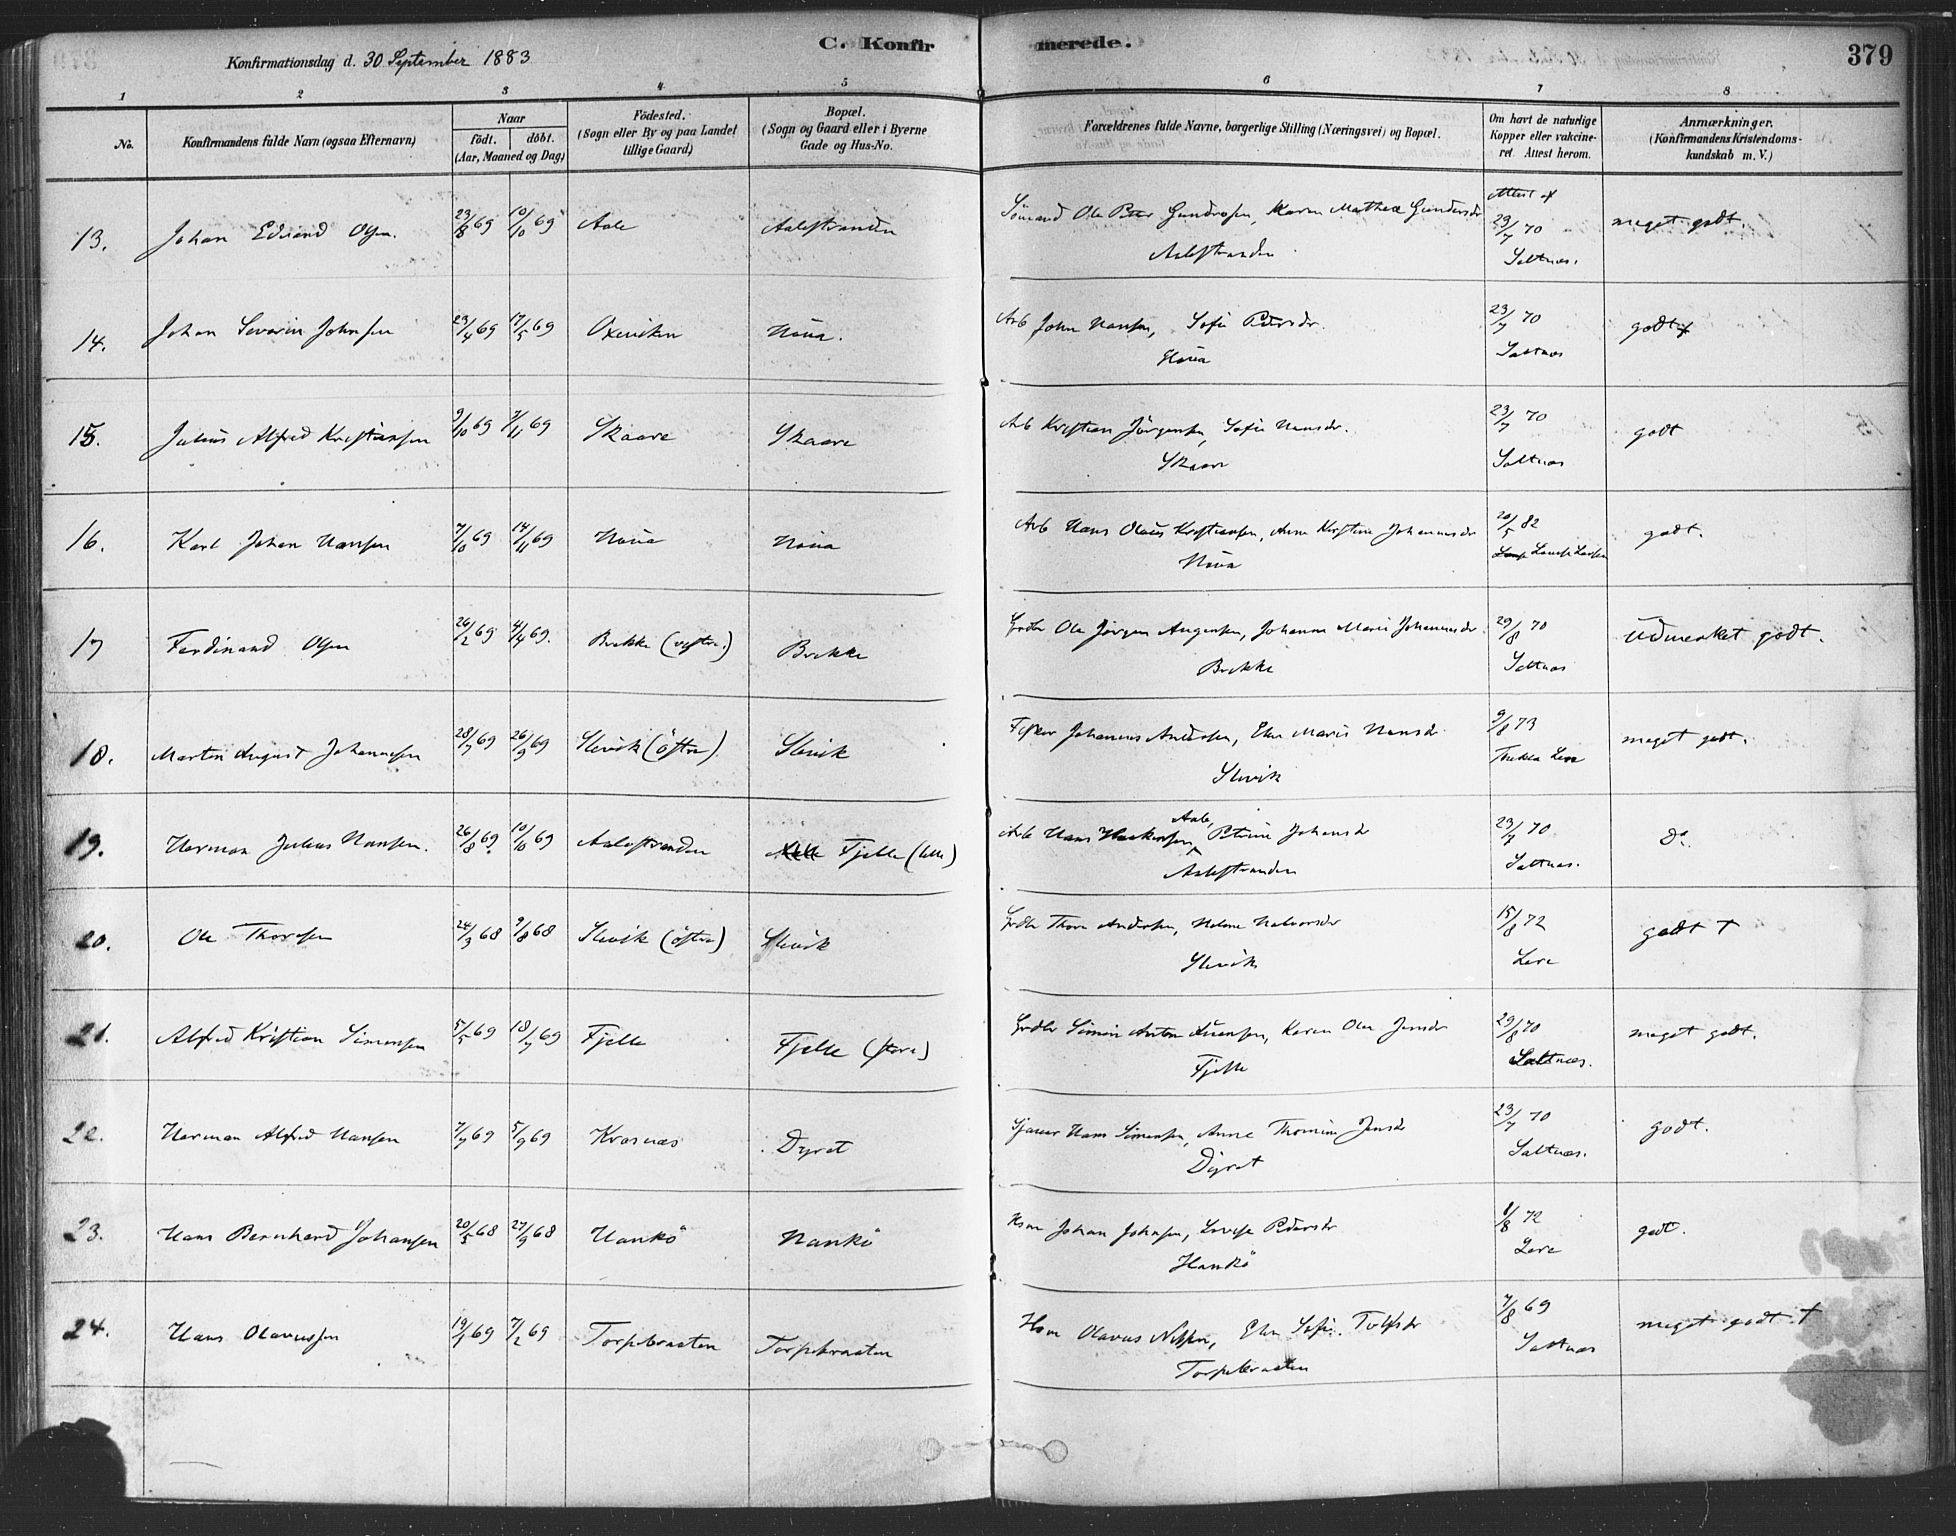 C. Konfirmerede.
379
Konfirmationsdag d. 30 September 1883
1 2 3 4 5 6 7 8
No.
Konfirmandens fulde Navn (ogsaa Efternavn)
Naar
født. døbt.
(Aar, Maaned og Dag)
Fødested.
(Sogn eller By og paa Landet
tillige Gaard)
Bopæl.
(Sogn og Gaard eller i Byerne
Gade og Hus-No.
Forældrenes fulde Navne, borgerlige Stilling (Næringsvei) og Bopæl.
Om havt de naturlige
Kopper eller vakcine-
ret. Attest herom.
Anmærkninger.
(Konfirmandens Kristendoms-
kundskab m. V.)
13. Johan Edvard Olsen. 23/8 69 10/10 69 Aale Aalestranden Sømand Ole Peter Gundersen, Karen Mathea Gundersdr Attest af 23/7 70 meget godt.
Aalestranden Saltnæs.
14. Johan Severin Johnsen 23/4 69 17/5 69 Oxeviken Houa. Arb John Hansen, Sofie Pedersdr. 23/7 70 godt
Houa Saltnæs
15. Julius Alfred Kristiansen 9/10 69 7/11 69 Skaare Skaare Arb Kristian Jörgensen, Sofie Hansdr. 23/7 70 godt
Skaare Saltnæs
16. Karl Johan Hansen 7/10 69 14/11 69 Houa Houa Arb Hans Olaus Kristiansen, Anne Kristine Johannesdr 20/5 82 godt.
Houa Lovise Larsen
17 Ferdinand Olsen 26/2 69 4/4 69. Brekke (vestre.) Brekke Grdbr Ole Jörgen Augensen, Johanne Marie Johannesdr 29/8 70 Udmerket godt.
Brekke Saltnæs
18. Martin August Johannesen 28/7 69 26/9 69 Slevik (östre) Slevik Fisker Johannes Andersen, Elen Marie Hansdr 9/8 73 meget godt.
Slevik Thekla Lere
19. Herman Julius Hansen. 26/8 69. 10/10 69 Aalestranden Fjelle (lille) Arb Hans Haakensen Aale, Petrine Johansdr 23/7 70 do.
Aalestranden Saltnæs.
20. Ole Thorsen 24/3 68 9/8 68 Slevik (östre) Slevik Grdbr Thore Andersen, Helene Halvorsdr 15/8 72 godt †
Slevik Lere
21. Alfred Kristian Simensen 5/5 69 18/7 69 Fjelle Fjelle (store) Grdbr Simen Anton Evensen, Karen Olea Jensdr 29/8 70 meget godt.
Fjelle Saltnæs.
22. Herman Alfred Hansen 7/7 69 5/9 69 Krosnæs Dyret Hans Simensen, Anne Thomine Jensdr 23/7 70 godt.
Dyret Saltnæs.
23. Hans Bernhard Johansen 20/5 68 27/9 68 Hankö Hankö Hsm Johan Johnsen, Lovise Pedersdr 1/8 72 godt.
Hankö Lere
24. Hans Olavussen 19/1 69 7/2 69 Torpebraaten Torpebraaten Hsm Olavus Nilssen, Elen Sofie Tolfsdr 7/8 69 meget godt †
Torpebraaten Saltnæs